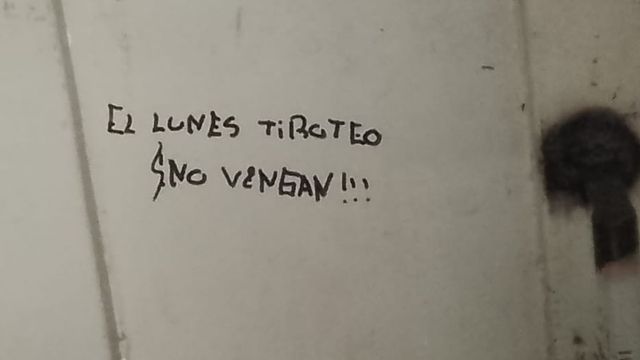 EL LUNES TiROTEO
NO VENGAN!!!